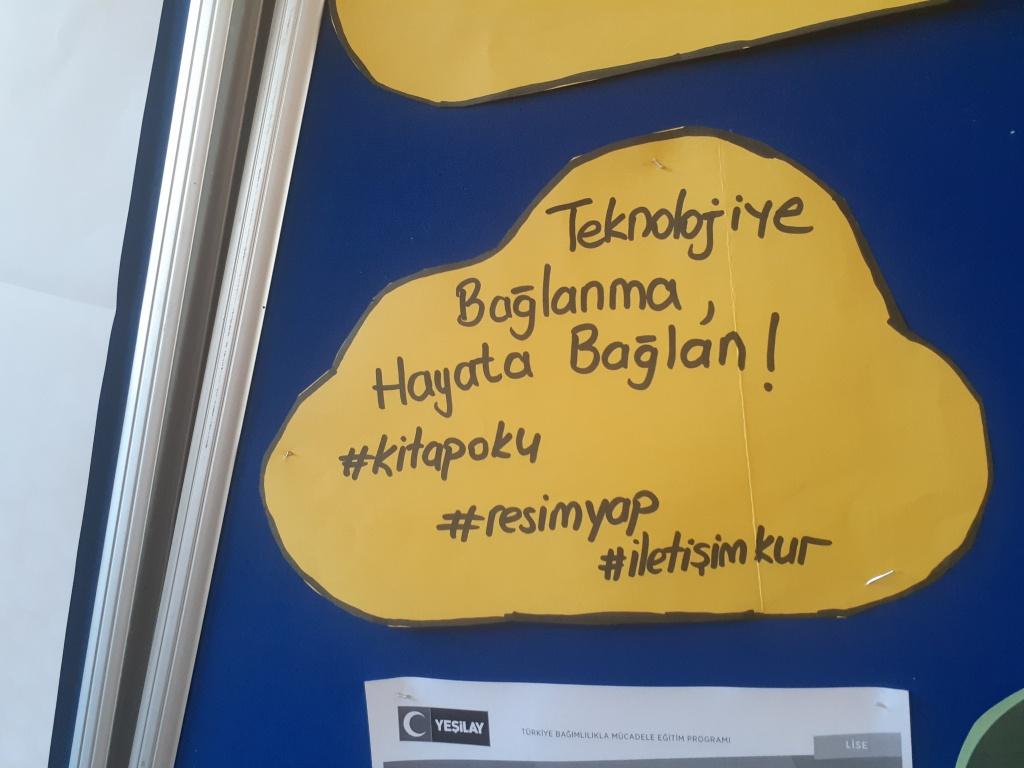 Teknolojiye
Bağlanma,
Hayata Bağlan!
#kitapoku
#resimyap
#iletişimkur
YEŞİLAY
TÜRKİYE BAĞIMLILIKLA MÜCADELE EĞİTİM PROGRAMI
LİSE